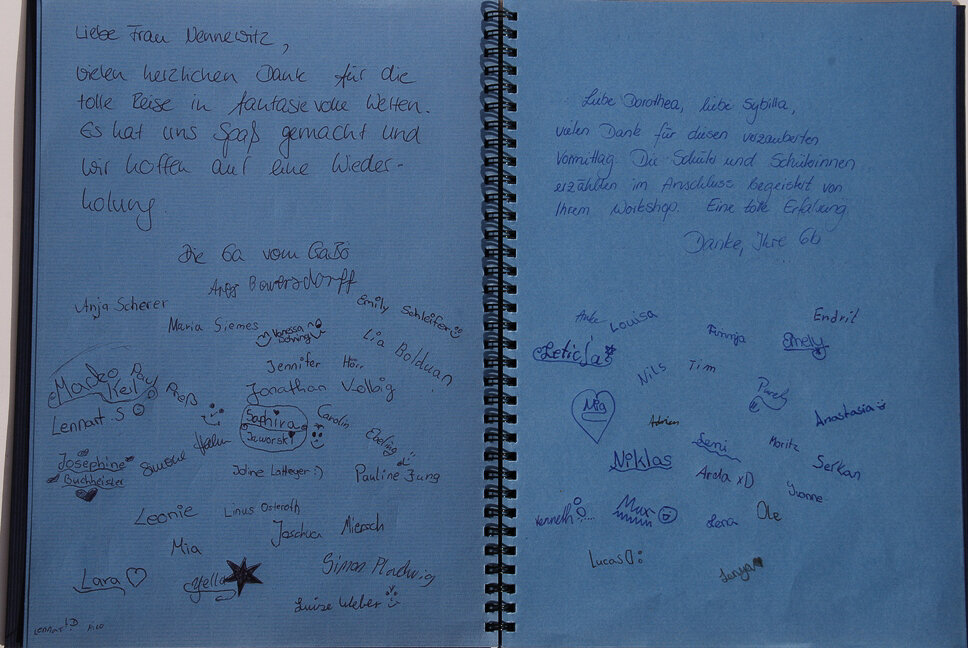 Liebe Frau Nennewitz,
vielen herzlichen Dank für die
tolle Reise in fantasievolle Welten.
Es hat uns Spaß gemacht und
wir hoffen auf eine Wieder-
holung.
Die 6a vom GaBö
Bowersdorff
Anja Scherer
Emily Schleifer
Maria Siemes
Vanessa
Lia Bolduan
Jennifer
Jonathan Vollbig
Marko
Paul Keil
Preß
Lennart. S
Saphira Jaworski
Carolin Ebeling
Simone Hahn
Josephine
Buchheister
Joline Latteger :)
Pauline Jung
Leonie
Linus Osteroth
Joschua Miersch
Mia
Simon Pladwig
Lara
Yella
Luise Weber
Lennart
Liebe Dorothea, liebe Sybilla,
vielen Dank für diesen verzauberten
Vormittag. Die Schüler und Schülerinnen
erzählten im Anschluss begeistert von
Ihrem Workshop. Eine tolle Erfahrung
Danke, Ihre 6b
Anke
Louisa
Finnja
Endrit
Emely
Leticia
Nils
Tim
Mia
Adrian
Anastasia
Leni
Moritz
Niklas
Arda xD
Serkan
Yvonne
Kenneth
Max
Lena
Ole
Lucas
Tanya